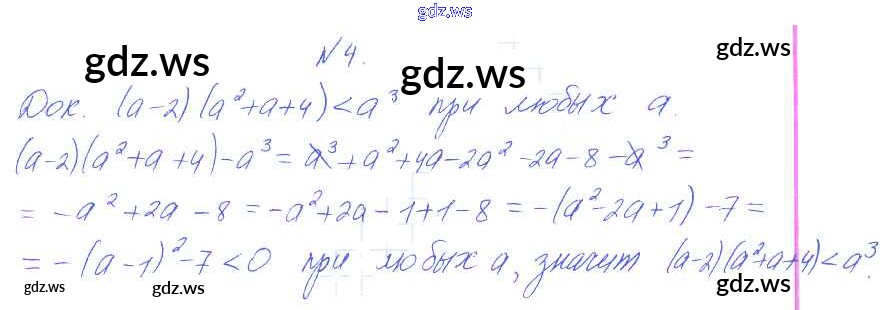 gdz.ws
N4.
gdz.ws gdz.ws gdz.ws
Док. (a-2)(a²+a+4)<a³ при любых a.
(a-2)(a²+a+4)-a³= a³+a²+4a-2a²-2a-8-a³=
= -a²+2a-8=-a²+2a-1+1-8=-(a²-2a+1)-7=
=-(a-1)²-7<0 при любых a, значит (a-2)(a²+a+4)<a³.
gdz.ws gdz.ws gdz.ws